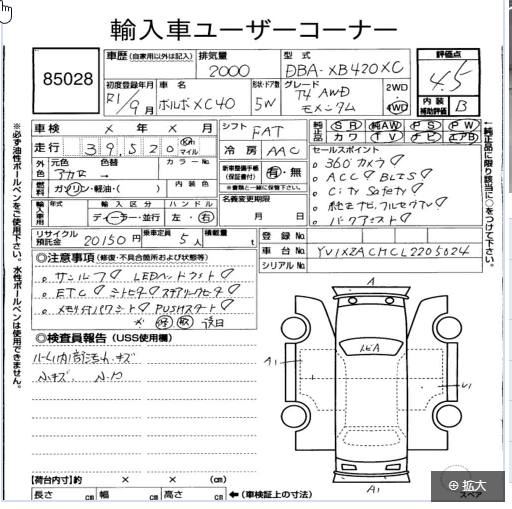 輸入車ユーザーコーナー
85028
車歴 (自家用以外は記入)
排気量 2000
型式 DBA-XB420XC
評価点 4.5
内装補助評価 B
初度登録年月 R1/9月
車名 ボルボXC40
形状・ドア数 5W
グレード T4 AWD モメンタム
2WD・4WD
車検 × 年 × 月
シフト FAT
純正品 SR 純AW PS PW
カワ TV ナビ エアB
走行 39,520 km マイル
冷房 AAC
セールスポイント
360°カメラ
ACC BLIS
City Safety
純正ナビ フルセグTV
バックアシスト
外色 元色 アカ 色替 →
カラーNo.
新車整備手帳(保証書付) 有・無
※書類と一緒に保管下さい。
燃料 ガソリン・軽油・( )
内装色
名義変更期限 月 日
輸入車用 年式
輸入区分 ディーラー・並行
ハンドル 左・右
リサイクル預託金 20150円
乗車定員 5人
積載量 t
登録No.
車台No. YV1XZACMCL2205024
シリアルNo.
◎注意事項 (修復・不具合箇所および状態等)
サンルーフ LEDヘッドライト
ETC シートヒータ ステアリングヒータ
メモリ付パワーシート PUSHスタート
◎検査員報告 (USS使用欄)
ルーム内部汚れ・キズ
小キズ、小凹
A
トビA
A1
U1
A1
【荷台内寸】約 × × (cm)
長さ cm 幅 cm 高さ cm
←(車検証上の寸法)
スペア
拡大
※必ず油性ボールペンをご使用下さい。水性ボールペンは使用できません。
←純正品に限り該当に○をつけて下さい。